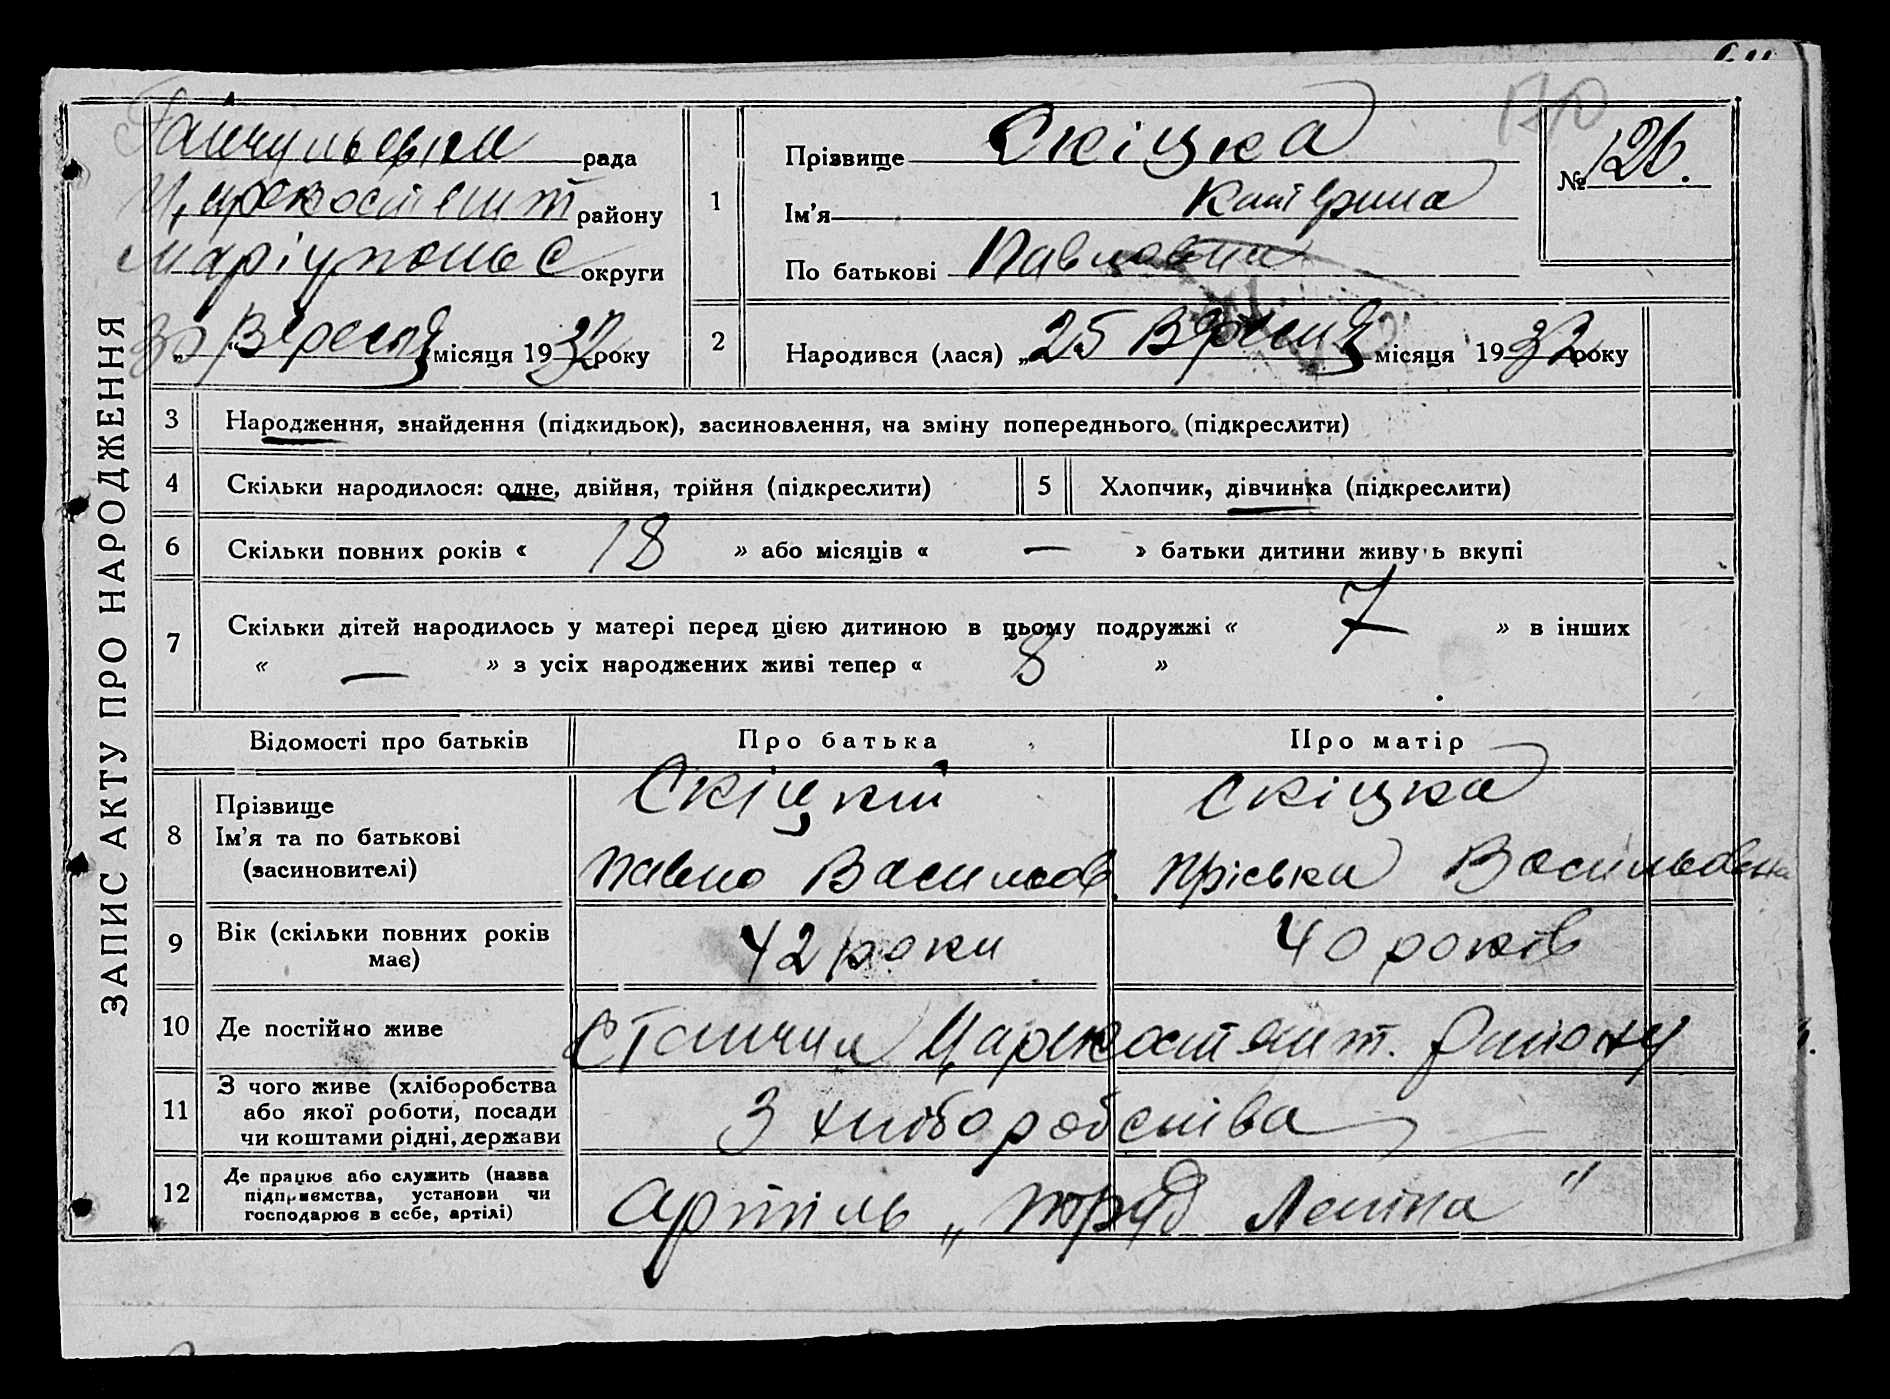 ЗАПИС АКТУ ПРО НАРОДЖЕННЯ
рада
району
округи
30 Вересня місяця 1932 року
170
№ 126.
1
Прізвище Скіцка
Ім’я Катерина
По батькові Павловна
2
Народився (лася) „25 Вересня місяця 1932 року
3 Народження, знайдення (підкидьок), засиновлення, на зміну попереднього (підкреслити)
4 Скільки народилося: одне, двійня, трійня (підкреслити) 5 Хлопчик, дівчинка (підкреслити)
6 Скільки повних років « 18 » або місяців « — » батьки дитини живуть вкупі
7 Скільки дітей народилось у матері перед цією дитиною в цьому подружжі « 7 » в інших
« — » з усіх народжених живі тепер « 8 »
Відомості про батьків Про батька Про матір
8 Прізвище
Ім’я та по батькові
(засиновителі)
Скіцкій
Павло Васильов.
Скіцка
Пріська Васильовна
9 Вік (скільки повних років
має)
42 роки
40 років
10 Де постійно живе
Царекостянт. району
11 З чого живе (хліборобства
або якої роботи, посади
чи коштами рідні, держави
З хліборобства
12 Де працює або служить (назва
підприємства, установи чи
господарює в себе, артілі)
Артіль „Труд Леніна"